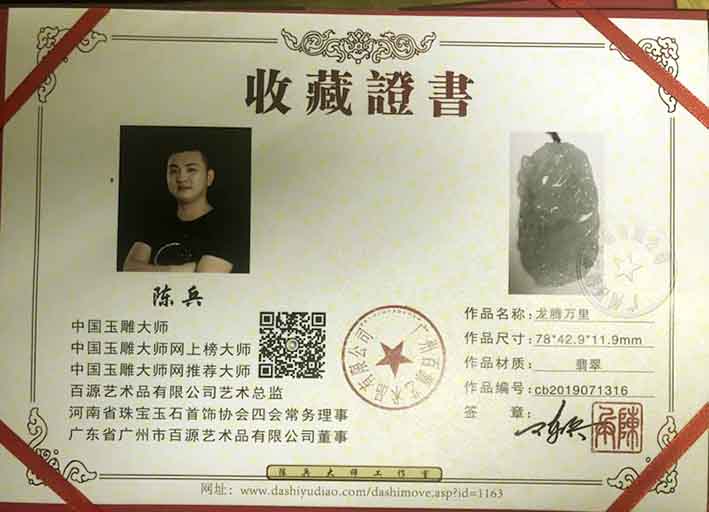 收藏證書
陈兵
中国玉雕大师
中国玉雕大师网上榜大师
中国玉雕大师网推荐大师
百源艺术品有限公司艺术总监
河南省珠宝玉石首饰协会四会常务理事
广东省广州市百源艺术品有限公司董事
广州百源艺术品有限公司
作品名称:龙腾万里
作品尺寸:78*42.9*11.9mm
作品材质:翡翠
作品编号:cb2019071316
签 章:
陈兵大师工作室
网址:www.dashiyudiao.com/dashimove.asp?id=1163